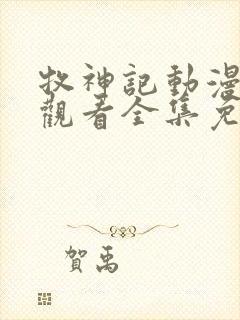 牧神記動漫
觀看全集免
賀禹